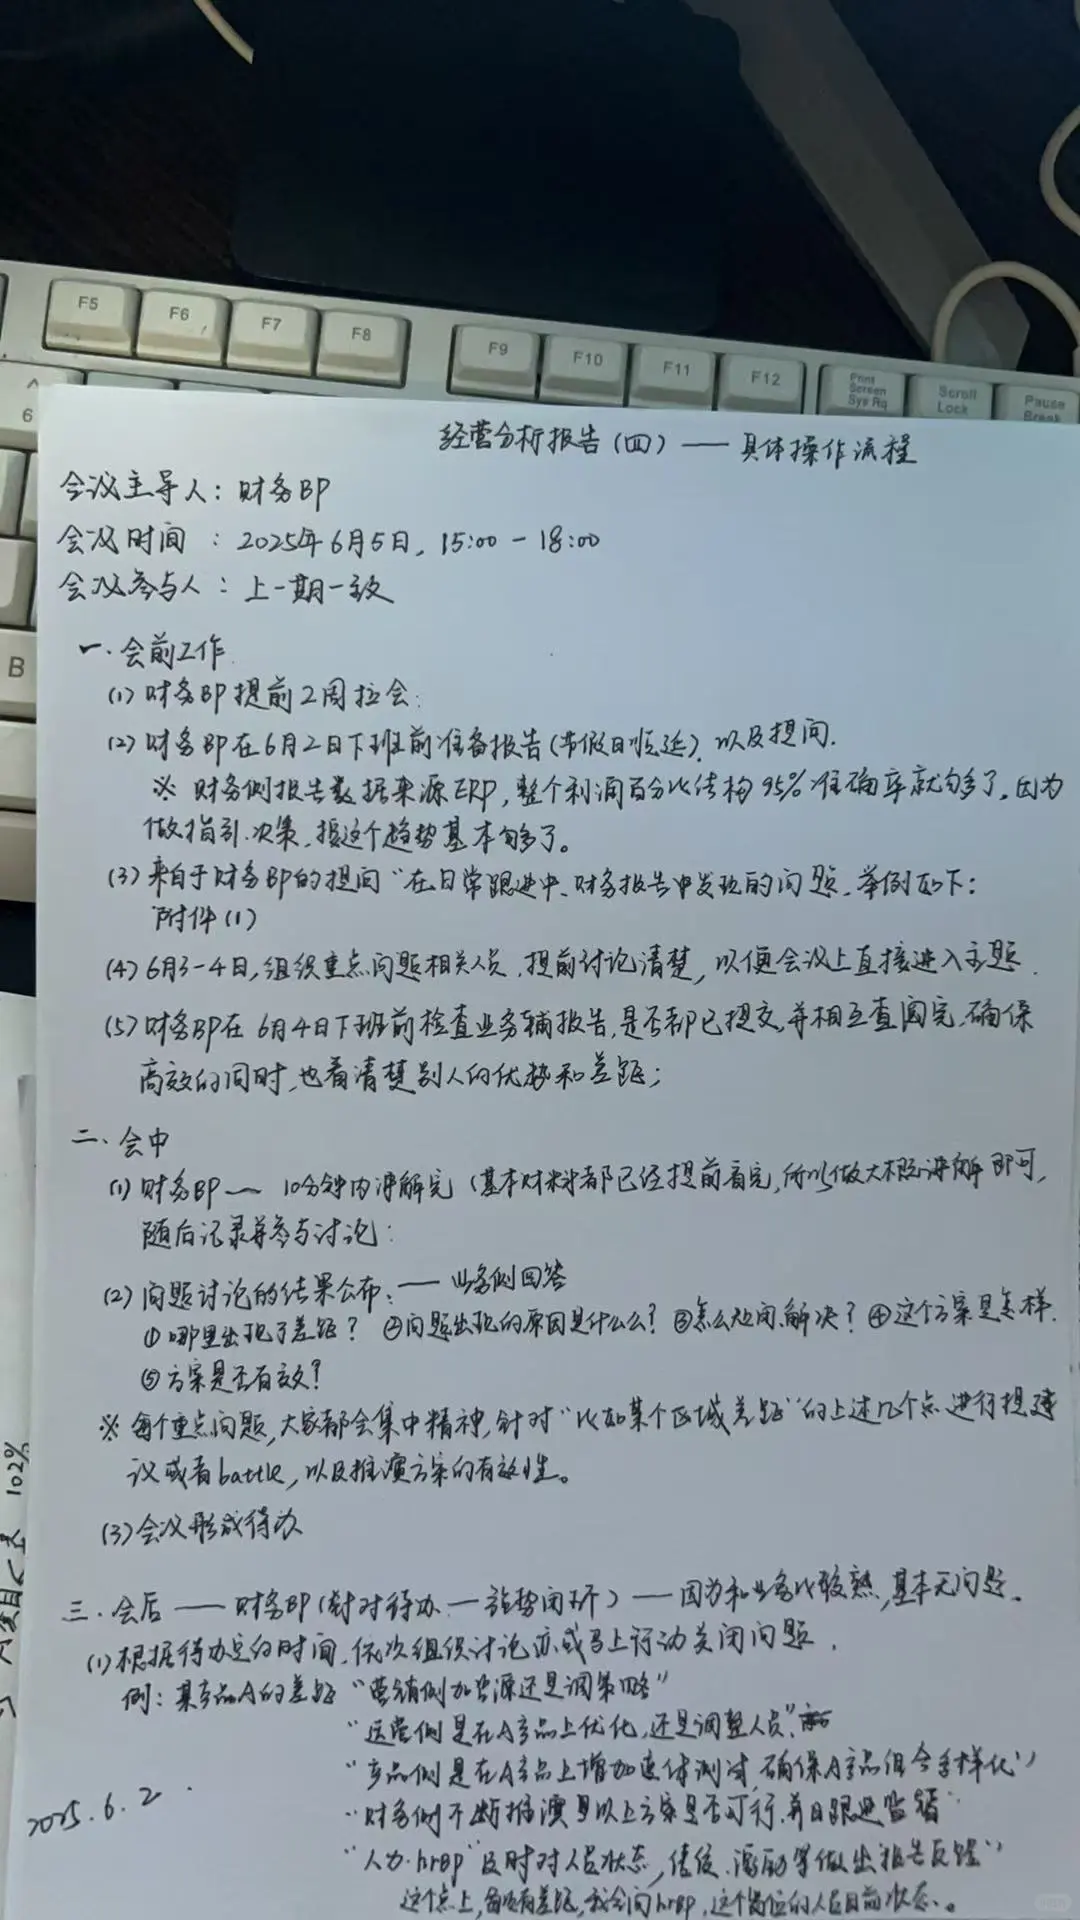 F5
F6
F7
F8
F9
F10
F11
F12
Print Screen Sys Rq
Scroll Lock
Pause Break
^
6
B
经营分析报告(四)——具体操作流程
会议主导人:财务BP
会议时间 : 2025年6月5日, 15:00-18:00
会议参与人 : 上一期一致
一.会前工作
(1)财务BP提前2周拉会:
(2)财务BP在6月2日下班前准备报告(节假日顺延),以及提问.
※ 财务侧报告数据来源ERP,整个利润百分比结构95%准确率就够了,因为
做指引.决策,按这个趋势基本够了。
(3)来自于财务BP的提问“在日常跟进中、财务报告中发现的问题,举例如下:
附件(1)
(4)6月3-4日,组织重点问题相关人员,提前讨论清楚,以便会议上直接进入主题.
(5)财务BP在6月4日下班前检查业务辅报告,是否都已提交,并相互查阅完,确保
高效的同时,也看清楚别人的优势和差距;
二、会中
(1)财务BP— 10分钟内讲解完(基本材料都已经提前看完,所以做大概讲解即可,
随后记录并参与讨论:
(2)问题讨论的结果公布:——业务侧回答
①哪里出现了差距? ②问题出现的原因是什么? ③怎么处理、解决? ④这个方案是怎样.
⑤方案是否有效?
※ 每个重点问题,大家都会集中精神,针对“比如某个区域差距”的上述几个点进行提建
议或者battle,以及推演方案的有效性。
(3)会议形成待办
三.会后——财务BP(针对待办—强势闭环)——因为和业务比较熟,基本无问题.
(1)根据待办定的时间,依次组织讨论亦或马上行动关闭问题.
例:某产品A的差距“营销侧加资源还是调策略”
“运营侧是在A产品上优化,还是调整人员”
“产品侧是在A产品上增加整体测试,确保A产品组合多样化”
“财务侧不断推演以上方案是否可行,并且跟进监督”
“人力.hrbp”及时对人员状态,情绪、激励等做出报告反馈”
这个点上,每次有差距,我会问hrbp,这个岗位的人员目前状态.。
2025.6.2
102%